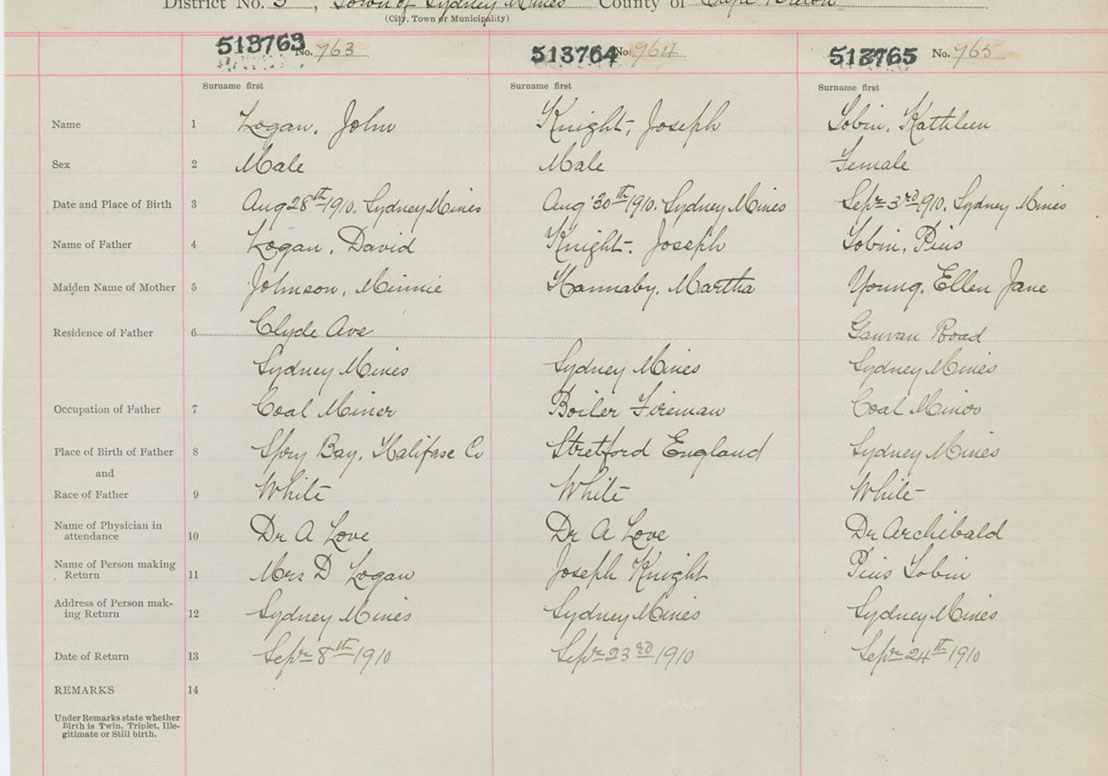 District No. 3, Town of Sydney Mines County of Cape Breton
(City, Town or Municipality)
513763 No. 763 513764 No. 764 513765 No. 765
Surname first Surname first Surname first
Name 1 Logan, John Knight, Joseph Tobin, Kathleen
Sex 2 Male Male Female
Date and Place of Birth 3 Aug 28th 1910. Sydney Mines Aug 30th 1910. Sydney Mines Sepr 3rd 1910. Sydney Mines
Name of Father 4 Logan, David Knight, Joseph Tobin, Pius
Maiden Name of Mother 5 Johnson, Minnie Hannaby, Martha Young, Ellen Jane
Residence of Father 6 Clyde Ave Road
Sydney Mines Sydney Mines Sydney Mines
Occupation of Father 7 Coal Miner Boiler Fireman Coal Miner
Place of Birth of Father 8 Spry Bay, Halifax Co Stretford England Sydney Mines
and
Race of Father 9 White White White
Name of Physician in
attendance 10 Dr A Love Dr A Love Dr Archibald
Name of Person making
Return 11 Mrs D Logan Joseph Knight Pius Tobin
Address of Person mak-
ing Return 12 Sydney Mines Sydney Mines Sydney Mines
Date of Return 13 Sepr 8th 1910 Sepr 23rd 1910 Sepr 24th 1910
REMARKS 14
Under Remarks state whether
Birth is Twin, Triplet, Ille-
gitimate or Still birth.